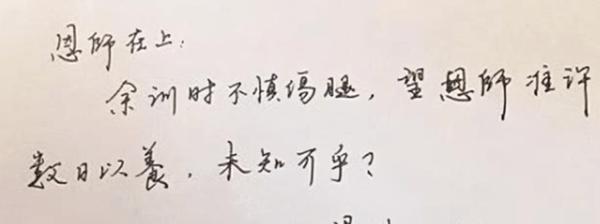 恩师在上:
余训时不慎傷腿，望恩师准许
数日以養，未知可乎？